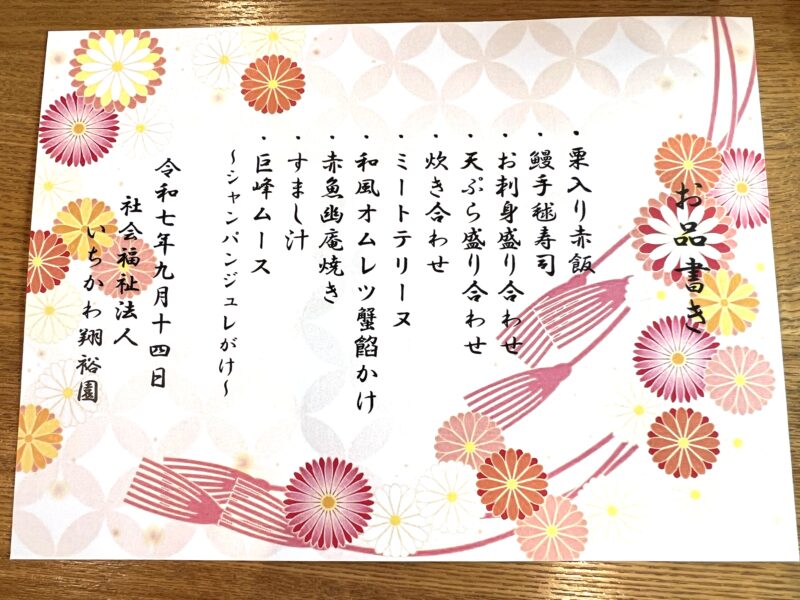 お品書き
・栗入り赤飯
・鰻手毬寿司
・お刺身盛り合わせ
・天ぷら盛り合わせ
・炊き合わせ
・ミートテリーヌ
・和風オムレツ蟹餡かけ
・赤魚幽庵焼き
・すまし汁
・巨峰ムース
～シャンパンジュレがけ～
令和七年九月十四日
社会福祉法人
いちかわ翔裕園